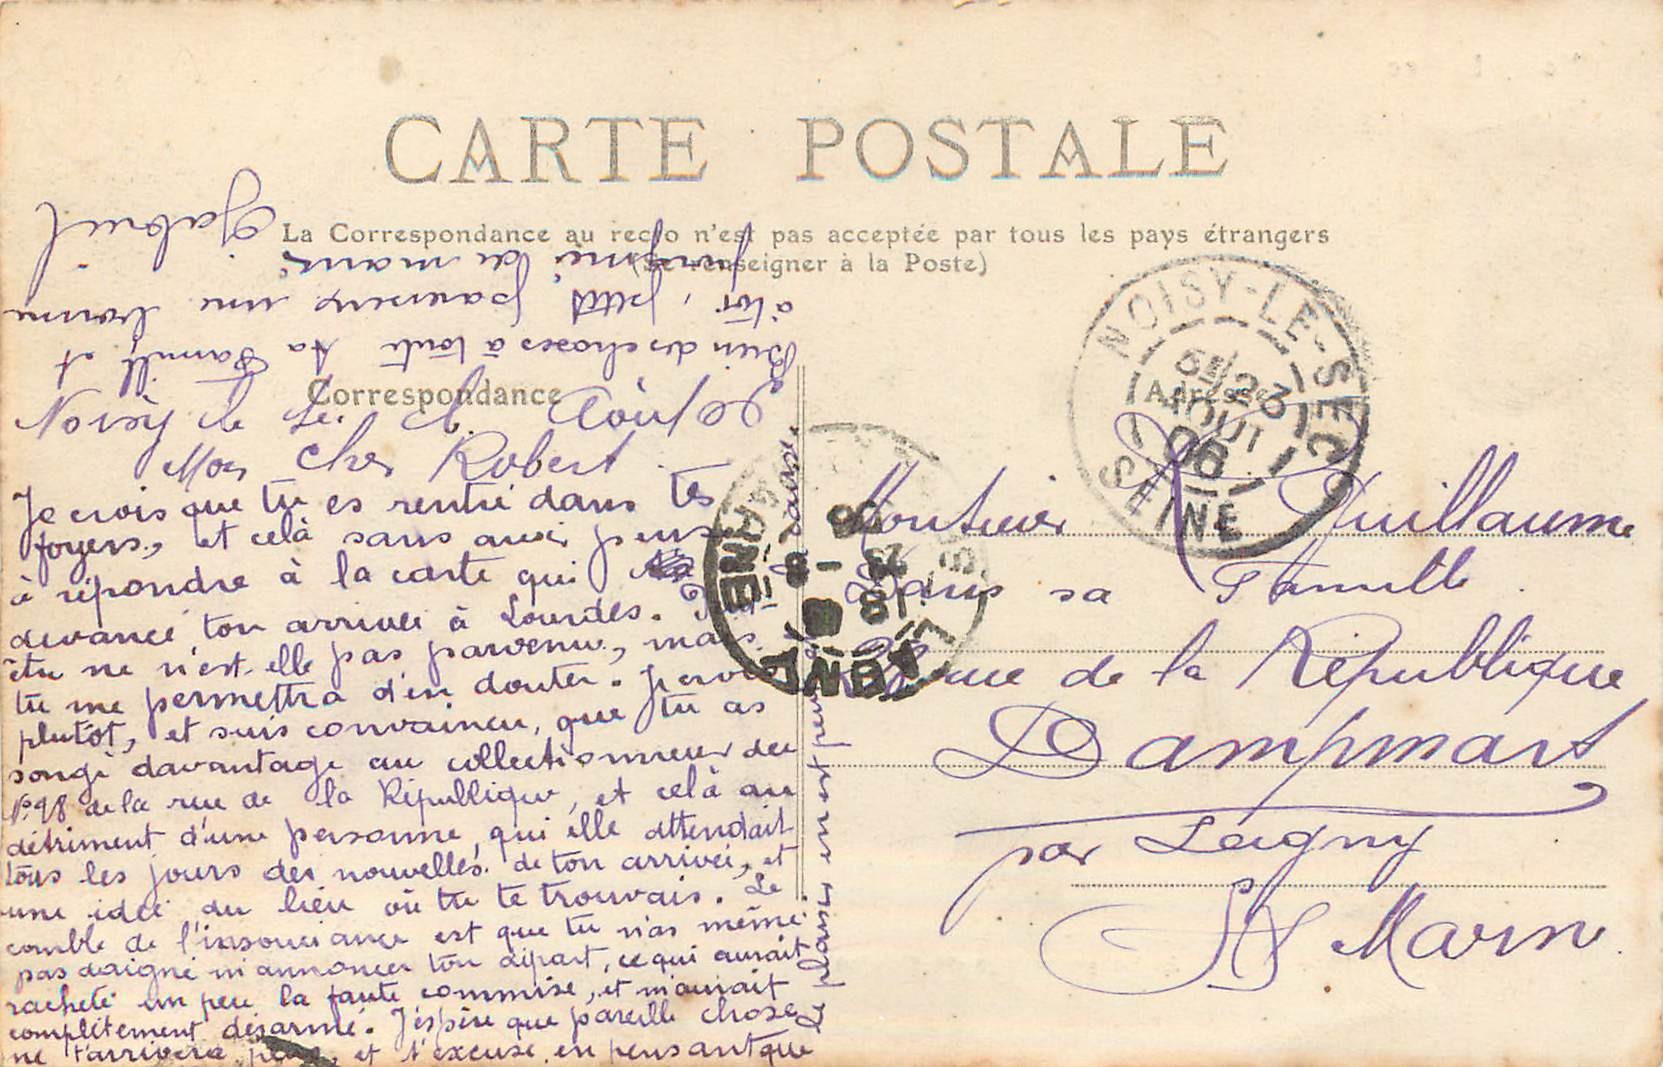 CARTE POSTALE
La Correspondance au recto n'est pas acceptée par tous les pays étrangers
(Se renseigner à la Poste)
Correspondance
Adresse
NOISY-LE-SEC
23
AOUT
06
SEINE
Noisy le Sec le
Mon cher Robert
Je crois que tu es rentré dans tes
foyers, et celà sans avoir pensé
à répondre à la carte qui
devancé ton arrivée à Lourdes. Peut-
être ne n'est-elle pas parvenue, mais
tu me permettra d'en douter. Je crois
plutôt, et suis convaincu, que tu as
songé davantage au collectionneur du
N° 98 de la rue de la République, et celà au
détriment d'une personne, qui elle attendait
tous les jours des nouvelles de ton arrivée, et
une idée du lieu où tu te trouvais. Le
comble de l'insouciance est que tu n'as même
pas daigné m'annoncer ton départ, ce qui aurait
racheté un peu la faute commise, et m'aurait
complètement désarmé. J'éspère que pareille chose
ne t'arrivera plus, et t'excuse en pensant que
la place en est peut
cause.
Bien des choses à toute ta famille et
à toi, petit paresseux une bonne
poignée de main
Gabriel
Monsieur R Guillaume
Dans sa Famille
Rue de la République
Dampmart
par Lagny
S et Marne